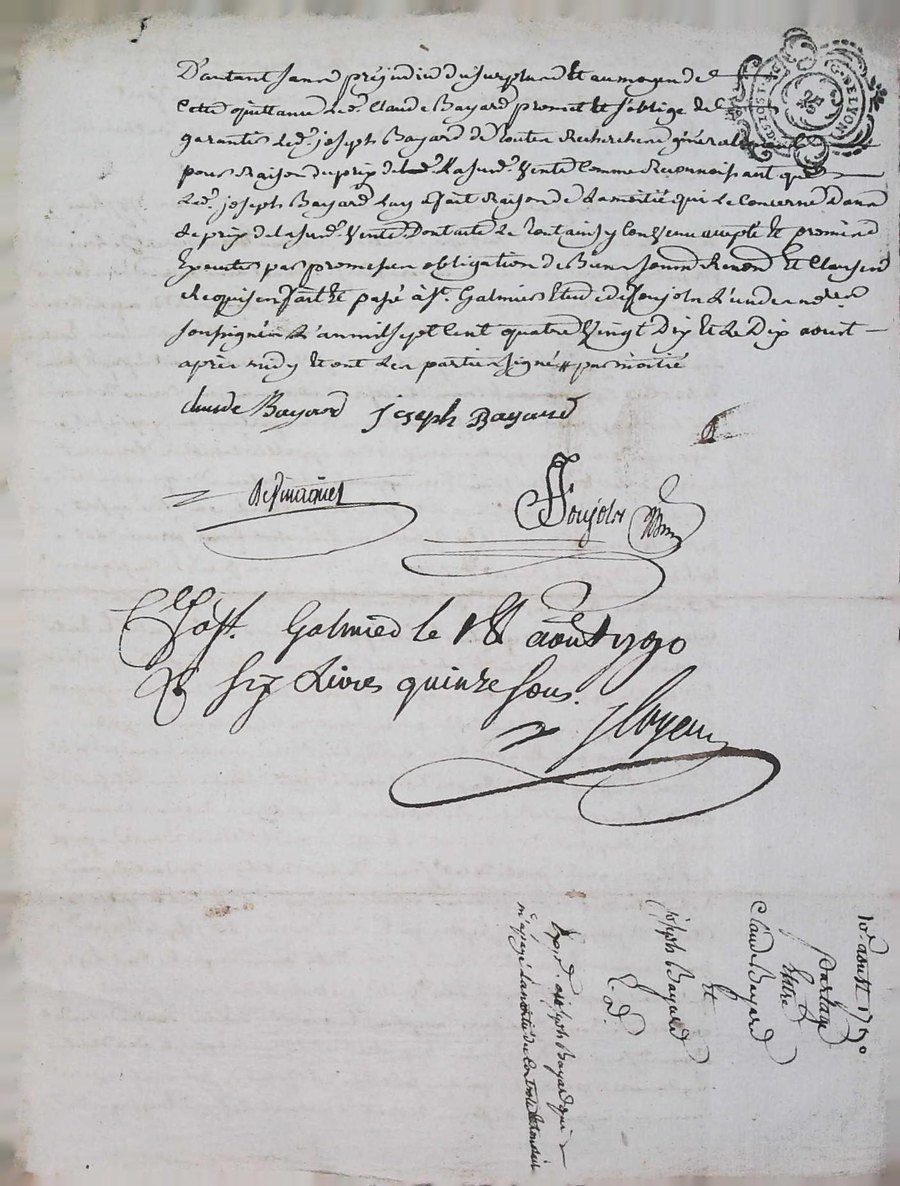 D'autant sans préjudice du surplus Et au moyen de
Cette quittance led. Claude Bayard promet Et s'oblige de
garantir led. joseph Bayard de toutes Recherches généralement
pour Raison du prix de la susd. Vente Comme Reconnoissant que
Led. joseph Bayard luy a fait Raison de la moitié qui le Concerne Dans
Le prix de la susd. Vente Dont acte Le tout ainsy Convenu accepté Et promis
Executer par promesses obligation de Biens soum. Renon. Et Clauses
Requises fait Et passé à St. Galmier Etude de Poujols L'un des no.res
soussignés L'an mil sept Cent quatre Vingt Dix Et Le Dix aoust
après midy Et ont Les parties signé par moitié
claude Bayard joseph Bayard
Poujols
à St. Galmier le 18 aoust 1790
six Livres quinze sous.
10e. aoust 1790
partage
Entre
Claude Bayard
Et
joseph Bayard
Exp. d. à joseph Bayard qui
m'a payé La moitié du Controle